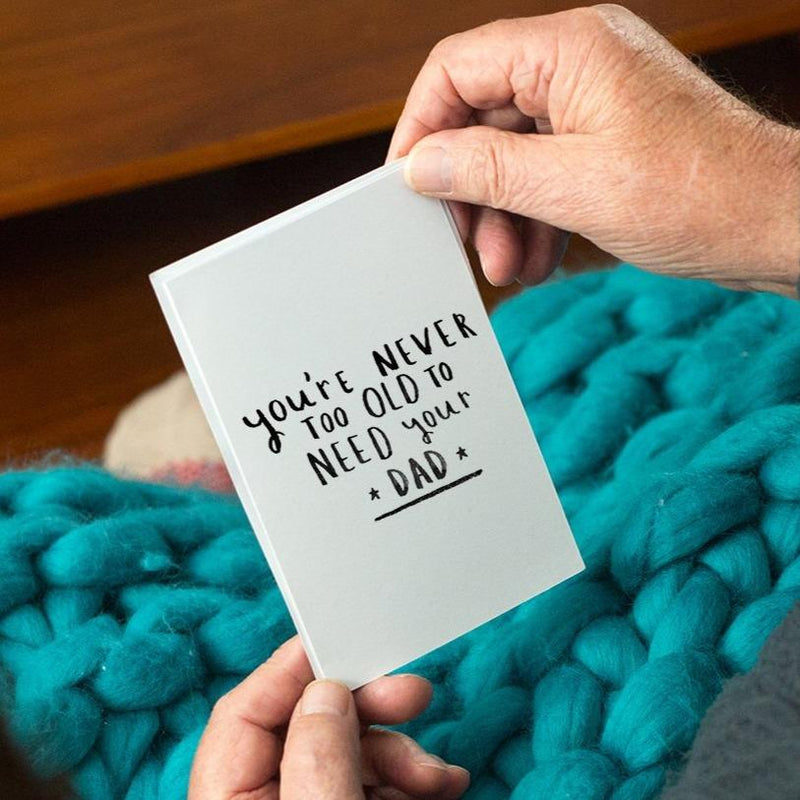 you're NEVER
TOO OLD TO
NEED your
* DAD *